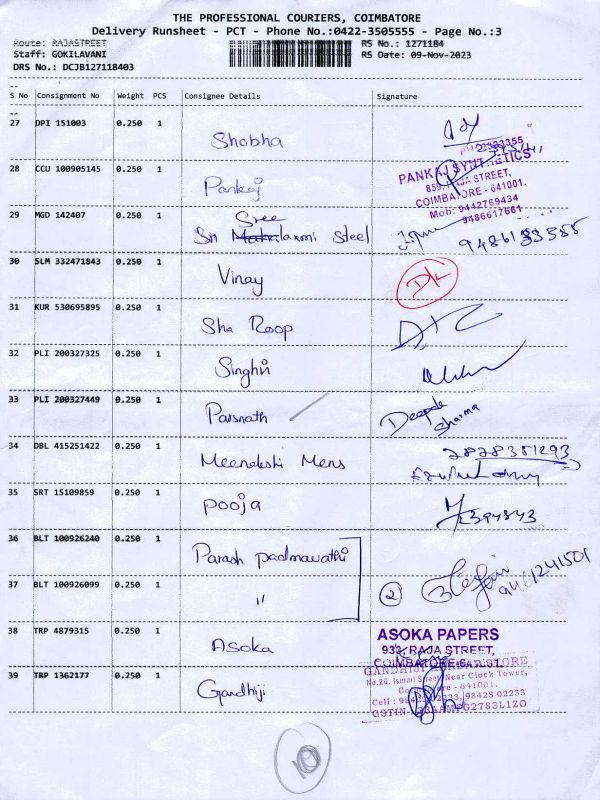 THE PROFESSIONAL COURIERS, COIMBATORE
Delivery Runsheet - PCT - Phone No.:0422-3505555 - Page No.:3
Route: RAJASTREET RS No.: 1271184
Staff: GOKILAVANI RS Date: 09-Nov-2023
DRS No.: DCJB127118403
S No Consignment No Weight PCS Consignee Details Signature
27 DPI 151003 0.250 1 Shobha
28 CCU 100905145 0.250 1 Pankaj
PANKAJ SYNTHETICS
859, RAJA STREET,
COIMBATORE - 641001.
Mob: 9442769434
9486617661
29 MGD 142407 0.250 1 Sree
Sri Mahalaxmi Steel
30 SLM 332471843 0.250 1 Vinay
31 KUR 530695895 0.250 1 Sha Roop
32 PLI 200327325 0.250 1 Singhvi
33 PLI 200327449 0.250 1 Parsnath Deepak
Sharma
34 DBL 415251422 0.250 1 Meenakshi Mens
35 SRT 15109859 0.250 1 Pooja
36 BLT 100926240 0.250 1 Parash Padmavathi
37 BLT 100926099 0.250 1 " 2
38 TRP 4879315 0.250 1 Asoka ASOKA PAPERS
937, RAJA STREET,
COIMBATORE-641 001.
39 TRP 1362177 0.250 1 Gandhiji
No.26, Ismail Street, Near Clock Tower,
Coimbatore - 641001.
98428 02233
10